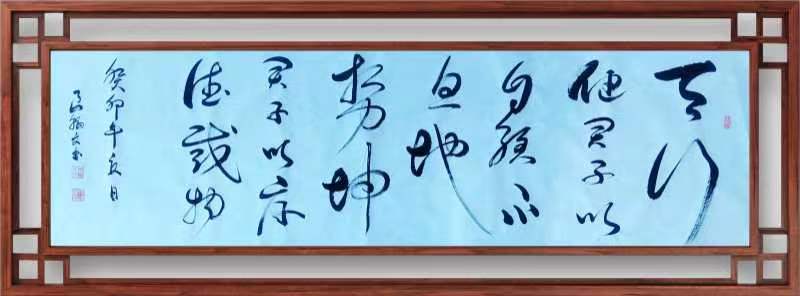 天行
健君子以
自强不
息地
势坤
君子以厚
德载物
癸卯年夏日